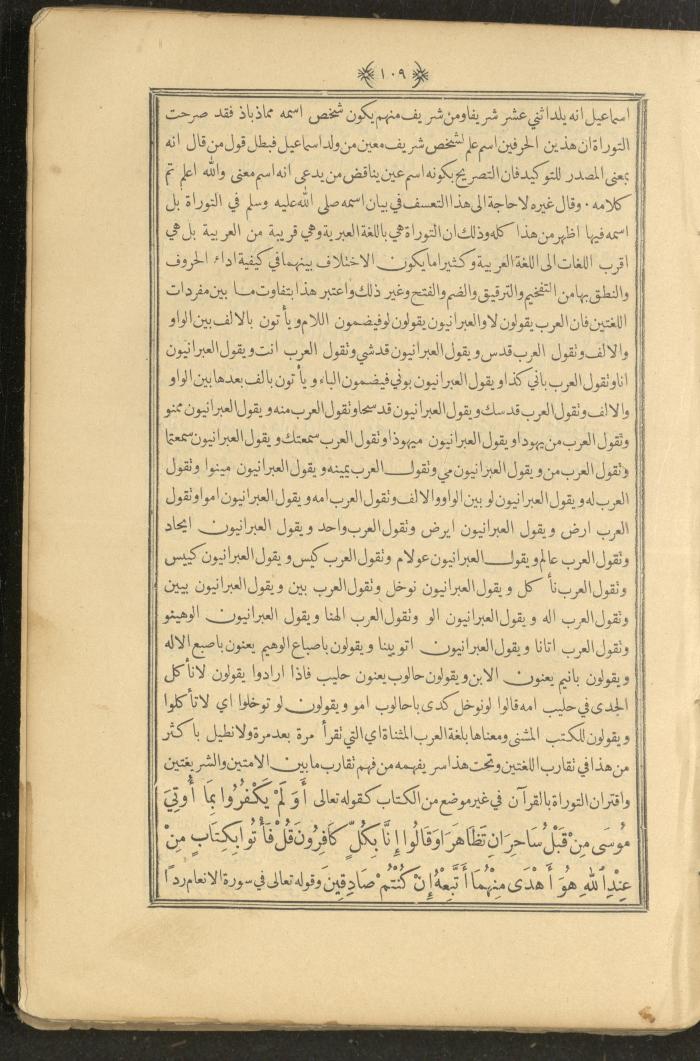 ١٠٩
اسماعيل انه يلد اثني عشر شريفا ومن شريف منهم يكون شخص اسمه مماذ باذ فقد صرحت
التوراة ان هذين الحرفين اسم علم لشخص شريف معين من ولد اسماعيل فبطل قول من قال انه
بمعنى المصدر للتوكيد فان التصريح بكونه اسم عين يناقض من يدعى انه اسم معنى والله اعلم تم
كلامه . وقال غيره لا حاجة الى هذا التعسف في بيان اسمه صلى الله عليه وسلم في التوراة بل
اسمه فيها اظهر من هذا كله وذلك ان التوراة هي باللغة العبرية وهي قريبة من العربية بل هي
اقرب اللغات الى اللغة العربية وكثيرا ما يكون الاختلاف بينهما في كيفية اداء الحروف
والنطق بها من التفخيم والترقيق والضم والفتح وغير ذلك واعتبر هذا بتفاوت ما بين مفردات
اللغتين فان العرب يقولون لا والعبرانيون يقولون لو فيضمون اللام ويأتون بالالف بين الواو
والالف وتقول العرب قدس ويقول العبرانيون قدشي وتقول العرب انت ويقول العبرانيون
انا وتقول العرب يأتي كذا ويقول العبرانيون يوتي فيضمون الياء ويأتون بالف بعدها بين الواو
والالف وتقول العرب قدسك ويقول العبرانيون قدسحا وتقول العرب منه ويقول العبرانيون ممنو
وتقول العرب من يهودا ويقول العبرانيون ميهوذا وتقول العرب سمعتك ويقول العبرانيون سمعتما
وتقول العرب من ويقول العبرانيون مي وتقول العرب يمينه ويقول العبرانيون مينوا وتقول
العرب له ويقول العبرانيون لو بين الواو والالف وتقول العرب امه ويقول العبرانيون اموا وتقول
العرب ارض ويقول العبرانيون ايرض وتقول العرب واحد ويقول العبرانيون ايحاد
وتقول العرب عالم ويقول العبرانيون عولام وتقول العرب كيس ويقول العبرانيون كييس
وتقول العرب نأكل ويقول العبرانيون نوخل وتقول العرب بين ويقول العبرانيون بيين
وتقول العرب اله ويقول العبرانيون الو وتقول العرب الهنا ويقول العبرانيون الوهينو
وتقول العرب اتانا ويقول العبرانيون اتوبينا ويقولون باصباع الوهيم يعنون باصبع الاله
ويقولون بانيم يعنون الابن ويقولون حالوب يعنون حليب فاذا ارادوا يقولون لا نأكل
الجدى في حليب امه قالوا لو نوخل كدى باحالوب امو ويقولون لو توخلوا اي لا تأكلوا
ويقولون للكتب المشنى ومعناها بلغة العرب المثناة اي التي تقرأ مرة بعد مرة ولا نطيل باكثر
من هذا في تقارب اللغتين وتحت هذا سر يفهمه من فهم تقارب ما بين الامتين والشريعتين
واقتران التوراة بالقرآن في غير موضع من الكتاب كقوله تعالى أَوَ لَمْ يَكْفُرُوا بِمَا أُوتِيَ
مُوسَى مِنْ قَبْلُ سَاحِرَانِ تَظَاهَرَا وَقَالُوا إِنَّا بِكُلٍّ كَافِرُونَ قُلْ فَأْتُوا بِكِتَابٍ مِنْ
عِنْدِ اللهِ هُوَ أَهْدَى مِنْهُمَا أَتَّبِعْهُ إِنْ كُنْتُمْ صَادِقِينَ وقوله تعالى في سورة الانعام ردًا